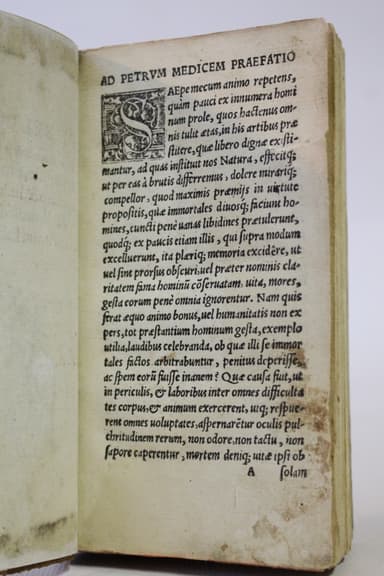 AD PETRVM MEDICEM PRAEFATIO
SAEpe mecum animo repetens,
quàm pauci ex innumera homi
num prole, quos hactenus om-
nis tulit ætas, in his artibus præ
stitere, quæ libero dignæ existi-
mantur, ad quas instituit nos Natura, effecitq;
ut per eas à brutis differremus, dolere mirariq;
compellor, quod maximis præmijs in uirtute
propositis, quæ immortales diuosq; faciunt ho-
mines, cuncti penè uanas libidines prætulerunt,
quodq; ex paucis etiam illis, qui supra modum
excelluerunt, ita pleriq; memoria excidêre, ut
uel sint prorsus obscuri, uel præter nominis cla-
ritatem fama hominũ cõseruatam, uita, mores,
gesta eorum penè omnia ignorentur. Nam quis
ferat æquo animo bonus, uel humanitatis non ex
pers, tot præstantium hominum gesta, exemplo
utilia, laudibus celebranda, ob quæ illi se immor
tales factos arbitrabuntur, penitus deperisse,
ac spem eorũ fuisse inanem? Quæ causa fuit, ut
in periculis, & laboribus inter omnes difficulta
tes corpus, & animum exercerent, utq; respue-
rent omnes uoluptates, aspernarẽtur oculis pul-
chritudinem rerum, non odore, non tactu, non
sapore caperentur, mortem deniq; uitæ ipsi ob
A solam